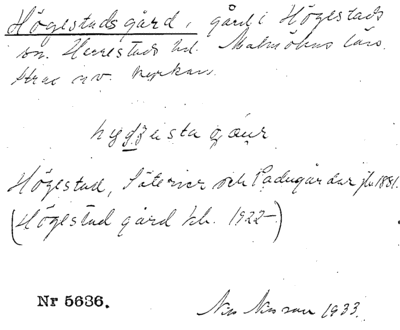 Högestads gård, gård i Högestads
sn. Herrestads hd. Malmöhus län.
strax n.v. kyrkan.
Högestad, Säterier och Ladugårdar jb 1881.
(Högestad gård kb. 1922–)
Nr 5636.
1933.